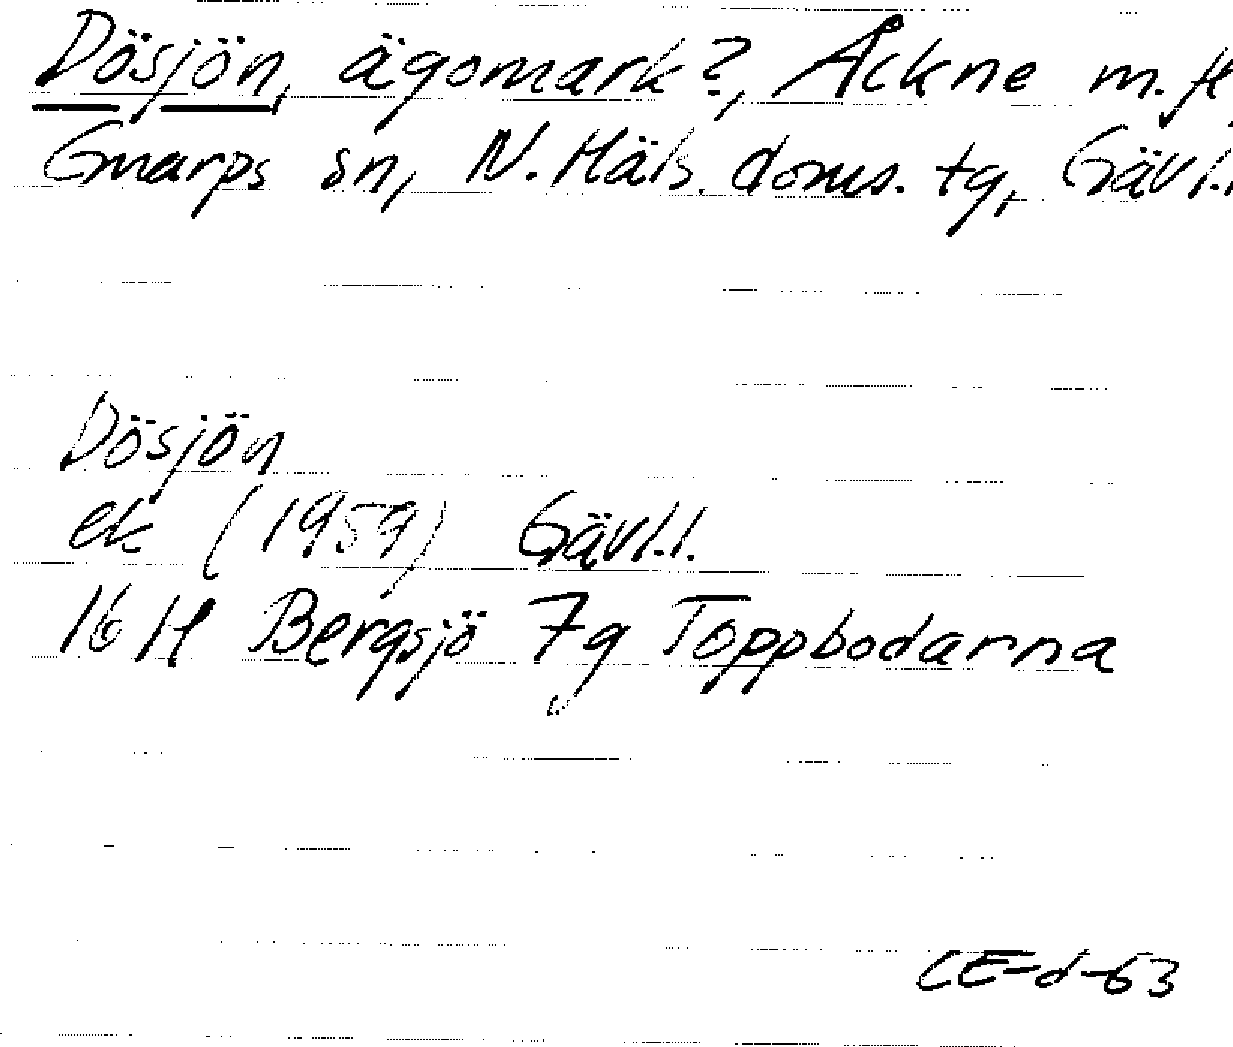 Dösjön, ägomark?, Åckne m.fl
Gnarps sn, N. Häls. doms. tg, Gävl.l
Dösjön
ek (1959) Gävl.l.
16 H Bergsjö 7g Toppbodarna
CE-d-63